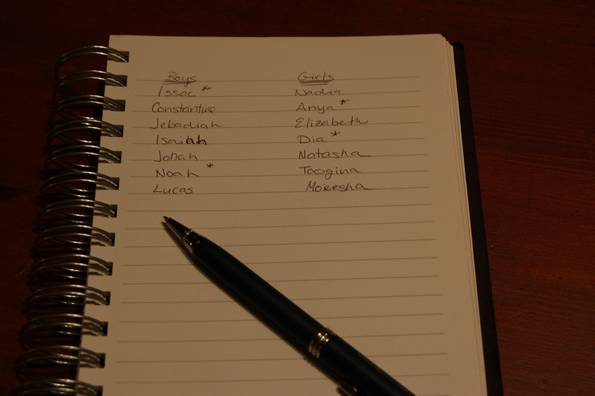 Boys Girls
Issac * Nadia
Constantine Anya *
Jebediah Elizabeth
Isaiah Dia *
Jonah Natasha
Noah *
Lucas Moiesha